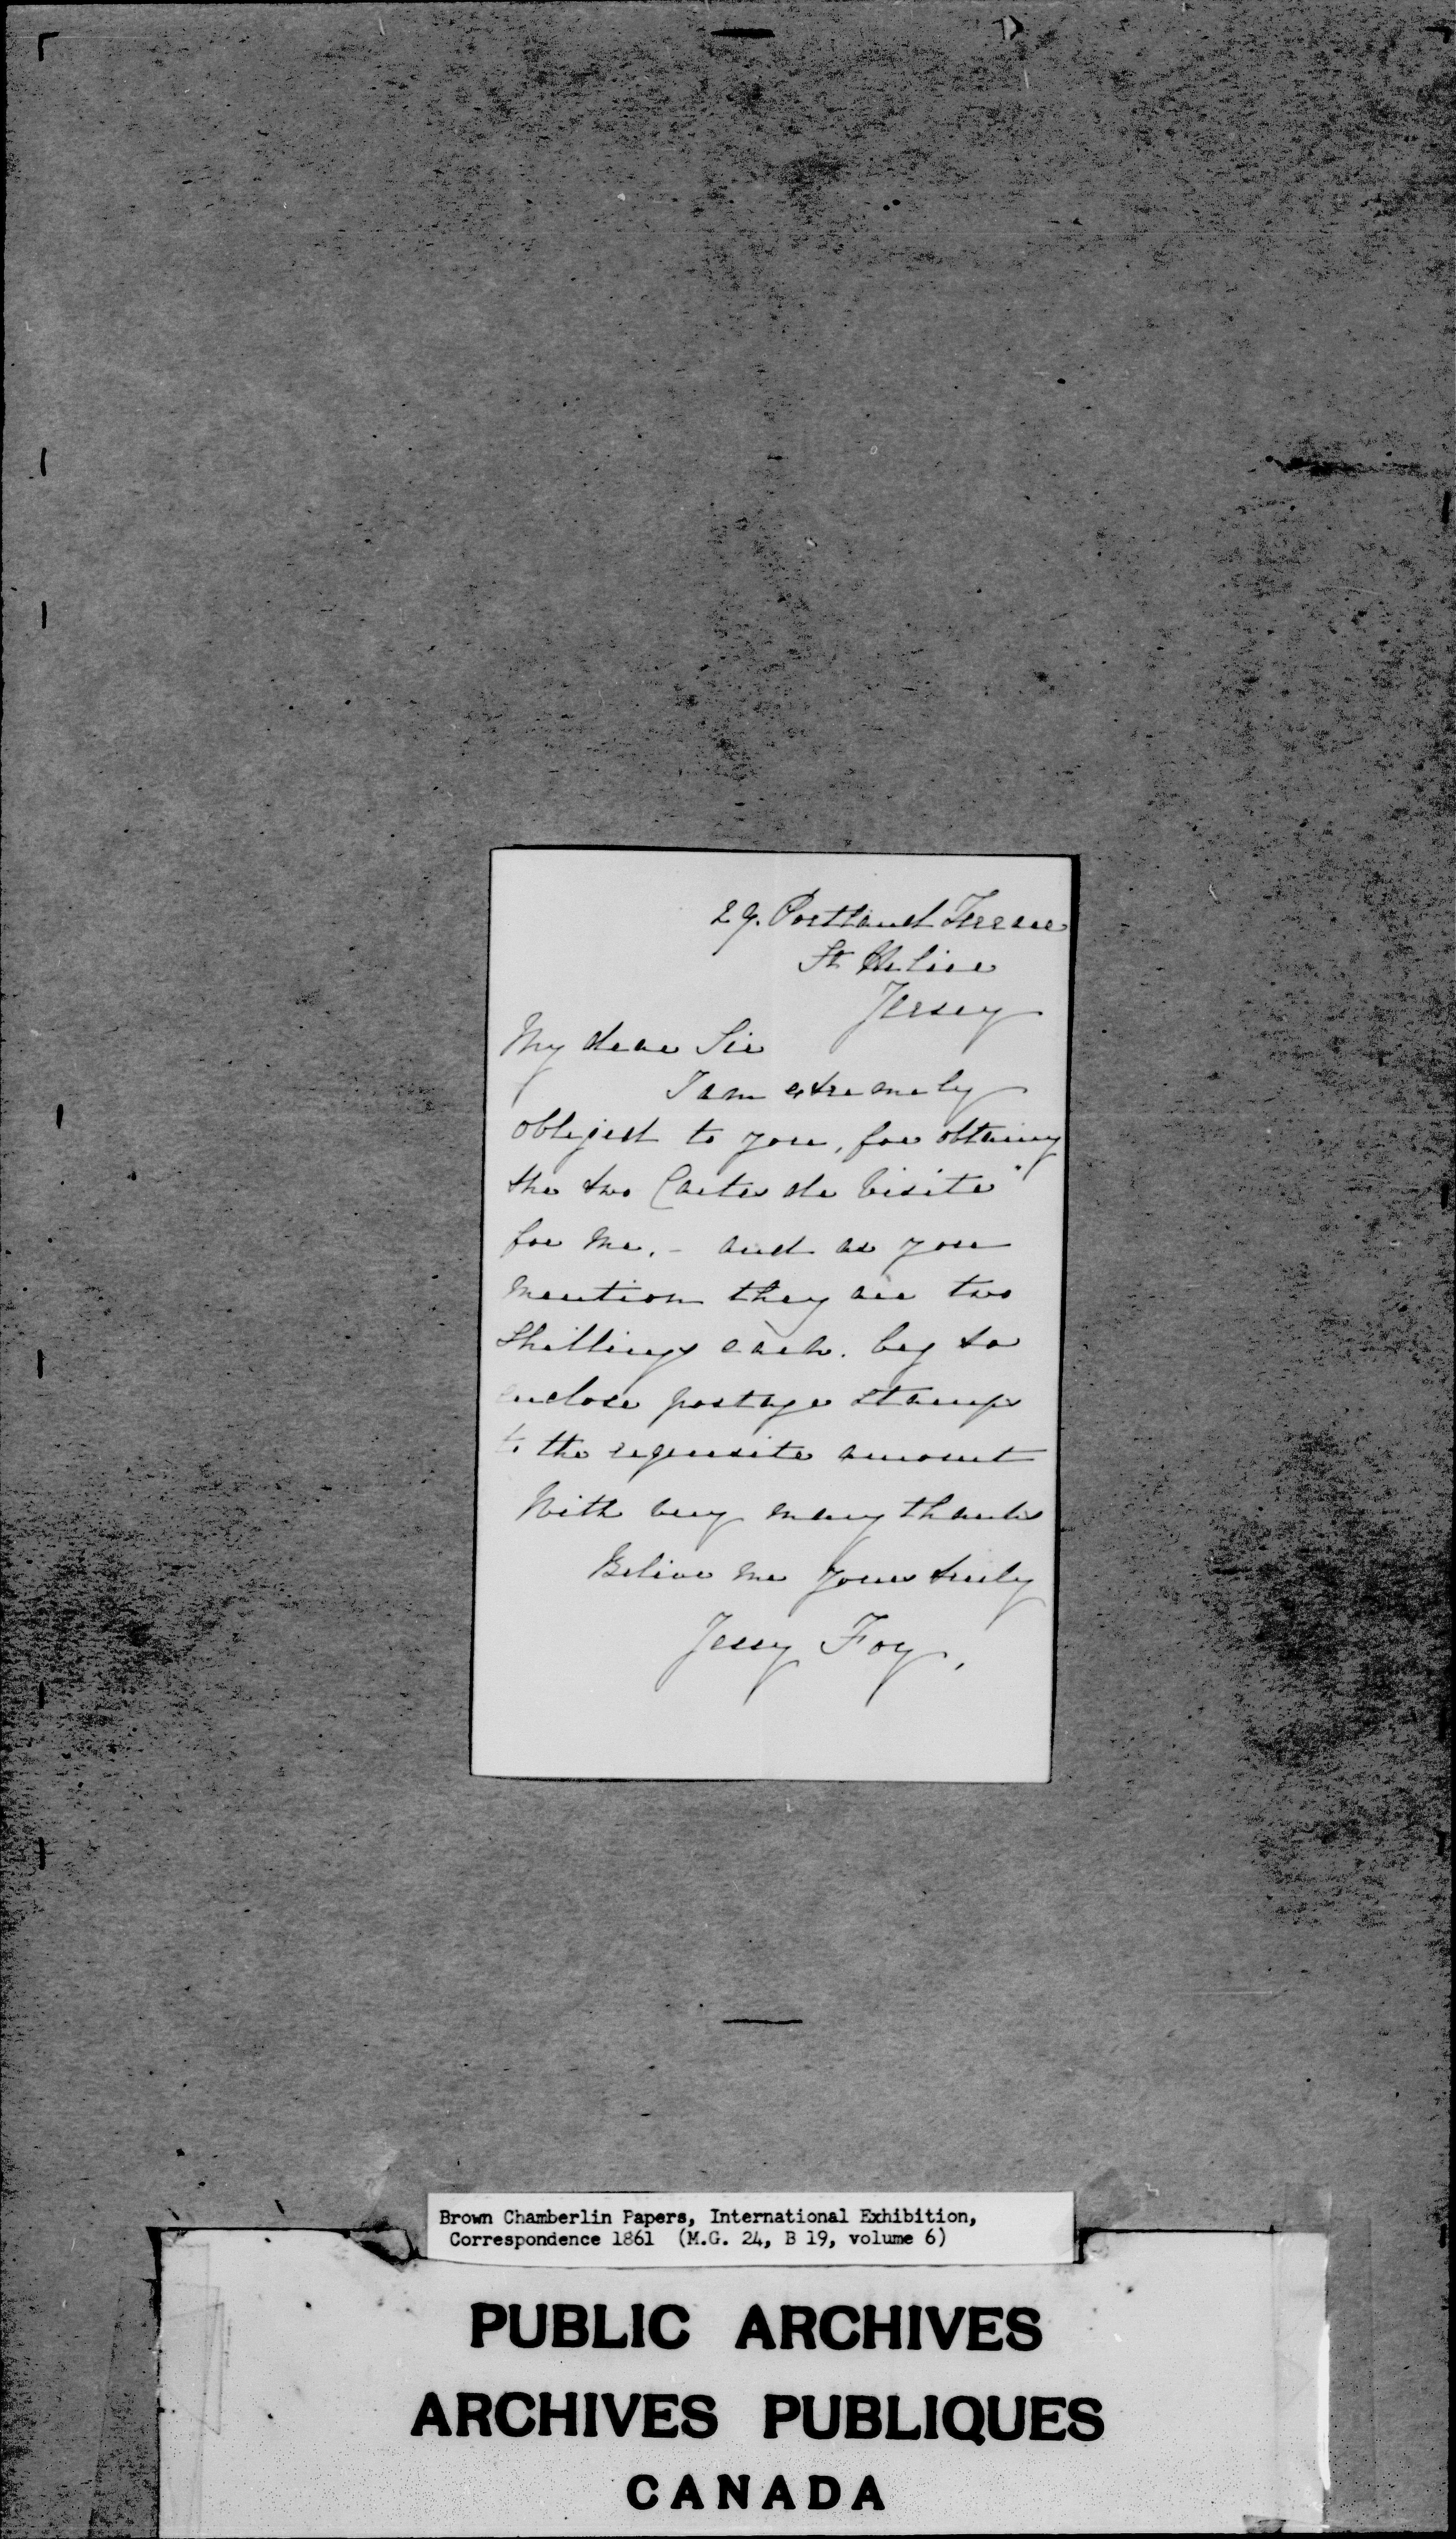 29. Portland Terrace
St Helier
Jersey
My dear Sir
I am extremely
obliged to you, for obtaining
the two Cartes de Visite"
for me. - and as you
mention they are two
Shillings each. beg to
enclose postage stamps
to the requisite amount
With very many thanks
Believe me yours truly
Foy.
Brown Chamberlin Papers, International Exhibition,
Correspondence 1861 (M.G. 24, B 19, volume 6)
PUBLIC ARCHIVES
ARCHIVES PUBLIQUES
CANADA